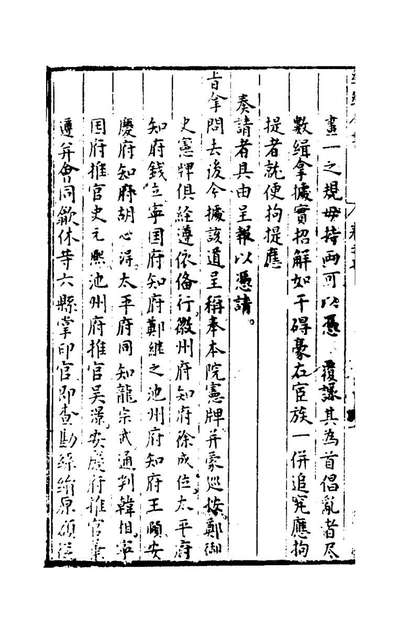 畫一之規毋持兩可以憑覆議其為首倡亂者尽
數緝拿據實招解如干碍豪右宦族一併追究應拘
提者就便拘提應
奏請者具由呈報以憑請。
旨拿問去後今據該道呈稱奉本院憲牌并蒙巡按鄭御
史憲牌俱經遵依俻行徽州府知府徐成位太平府
知府錢立寧国府知府鄭継之池州府知府王頤安
慶府知府胡心得太平府同知龍宗武通判韓相寧
国府推官史元熙池州府推官吳 安慶府推官
遵并會同歙休等六縣掌印官即查勘絲絹原額從